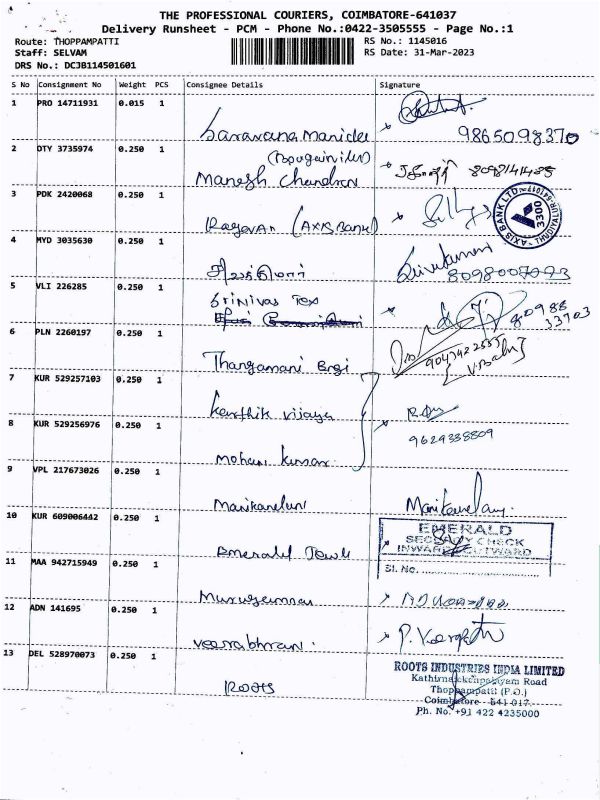 THE PROFESSIONAL COURIERS, COIMBATORE-641037
Delivery Runsheet - PCM - Phone No.:0422-3505555 - Page No.:1
Route: THOPPAMPATTI RS No.: 1145016
Staff: SELVAM RS Date: 31-Mar-2023
DRS No.: DCJB114501601
S No Consignment No Weight PCS Consignee Details Signature
1 PRO 14711931 0.015 1
Saravana Manidee 9865098370
2 OTY 3735974 0.250 1
(Bougainviles)
Manesh Chandran 8098141485
3 PDK 2420068 0.250 1
Ragavan (AXIS Bank)
AXIS BANK LTD
3300
4 MYD 3035630 0.250 1
Sivakumar
8098007093
5 VLI 226285 0.250 1
Srinivas Tex
80988
33703
6 PLN 2260197 0.250 1
Thangamani Engi
9047422555
[V.Babu]
7 KUR 529257103 0.250 1
Karthik vijaya
8 KUR 529256976 0.250 1
9629338809
Mohan kumar
9 VPL 217673026 0.250 1
Manikandan Manikandan
10 KUR 609006442 0.250 1
EMERALD
SECURITY CHECK
INWARD/OUTWARD
Emerald Jewel
Sl. No.
11 MAA 942715949 0.250 1
Murugesan
12 ADN 141695 0.250 1
Veerabhran P. Veera
13 DEL 528970073 0.250 1
ROOTS INDUSTRIES INDIA LIMITED
Road
Thoppampatti (P.O.)
Roots
Coimbatore - 641 017.
Ph. No. +91 422 4235000